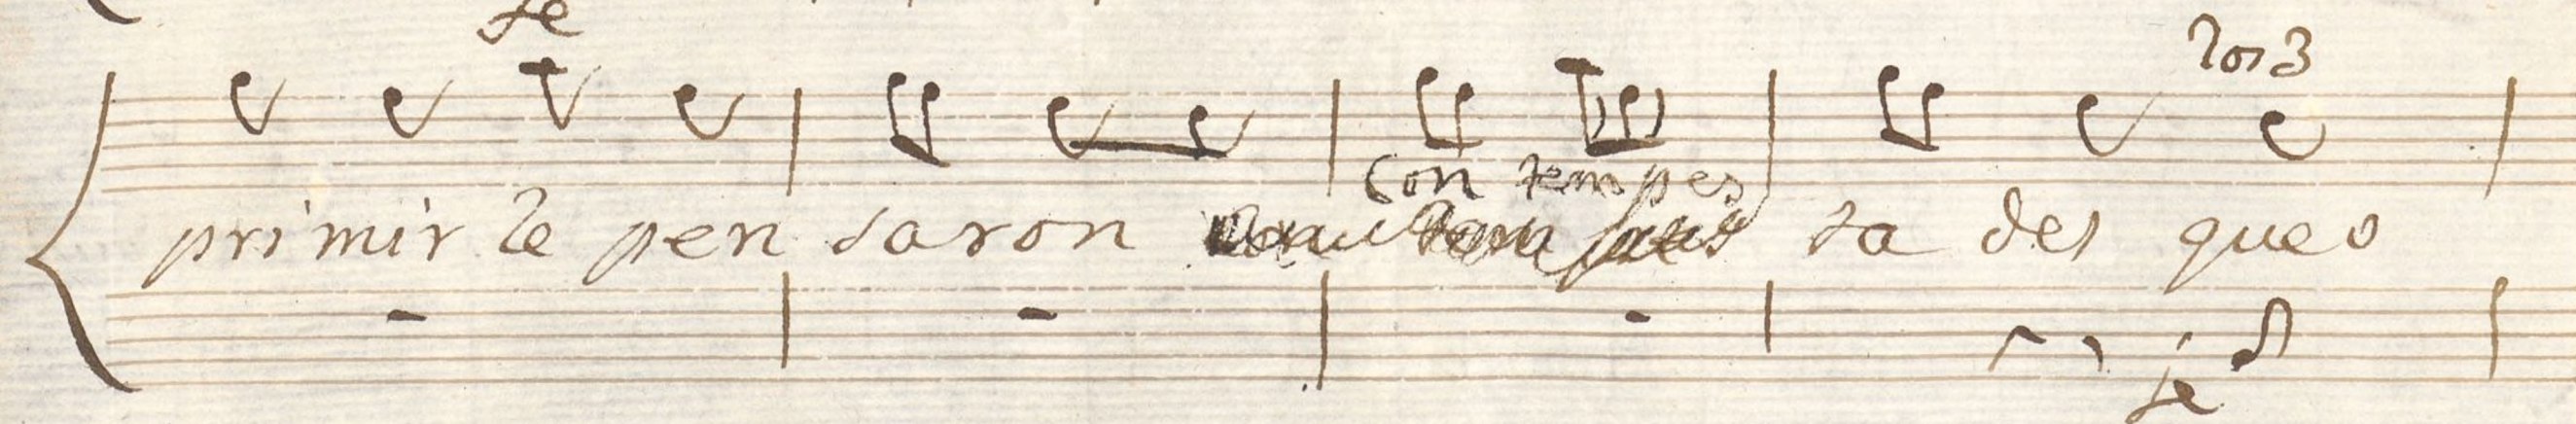 fe
los 3
Con tempes
primir le pen saron ta des que o
fe